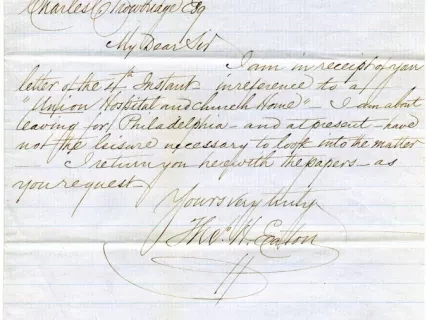 Charles C Trowbridge Esq
My Dear Sir
I am in receipt of your
letter of the 4th Instant in reference to a
"Union Hospital and Church Home" - I am about
leaving for Philadelphia - and at present have
not the leisure necessary to look into the matter
I return you herewith the papers - as
you request -
Yours very truly
Thos. H. Eaton